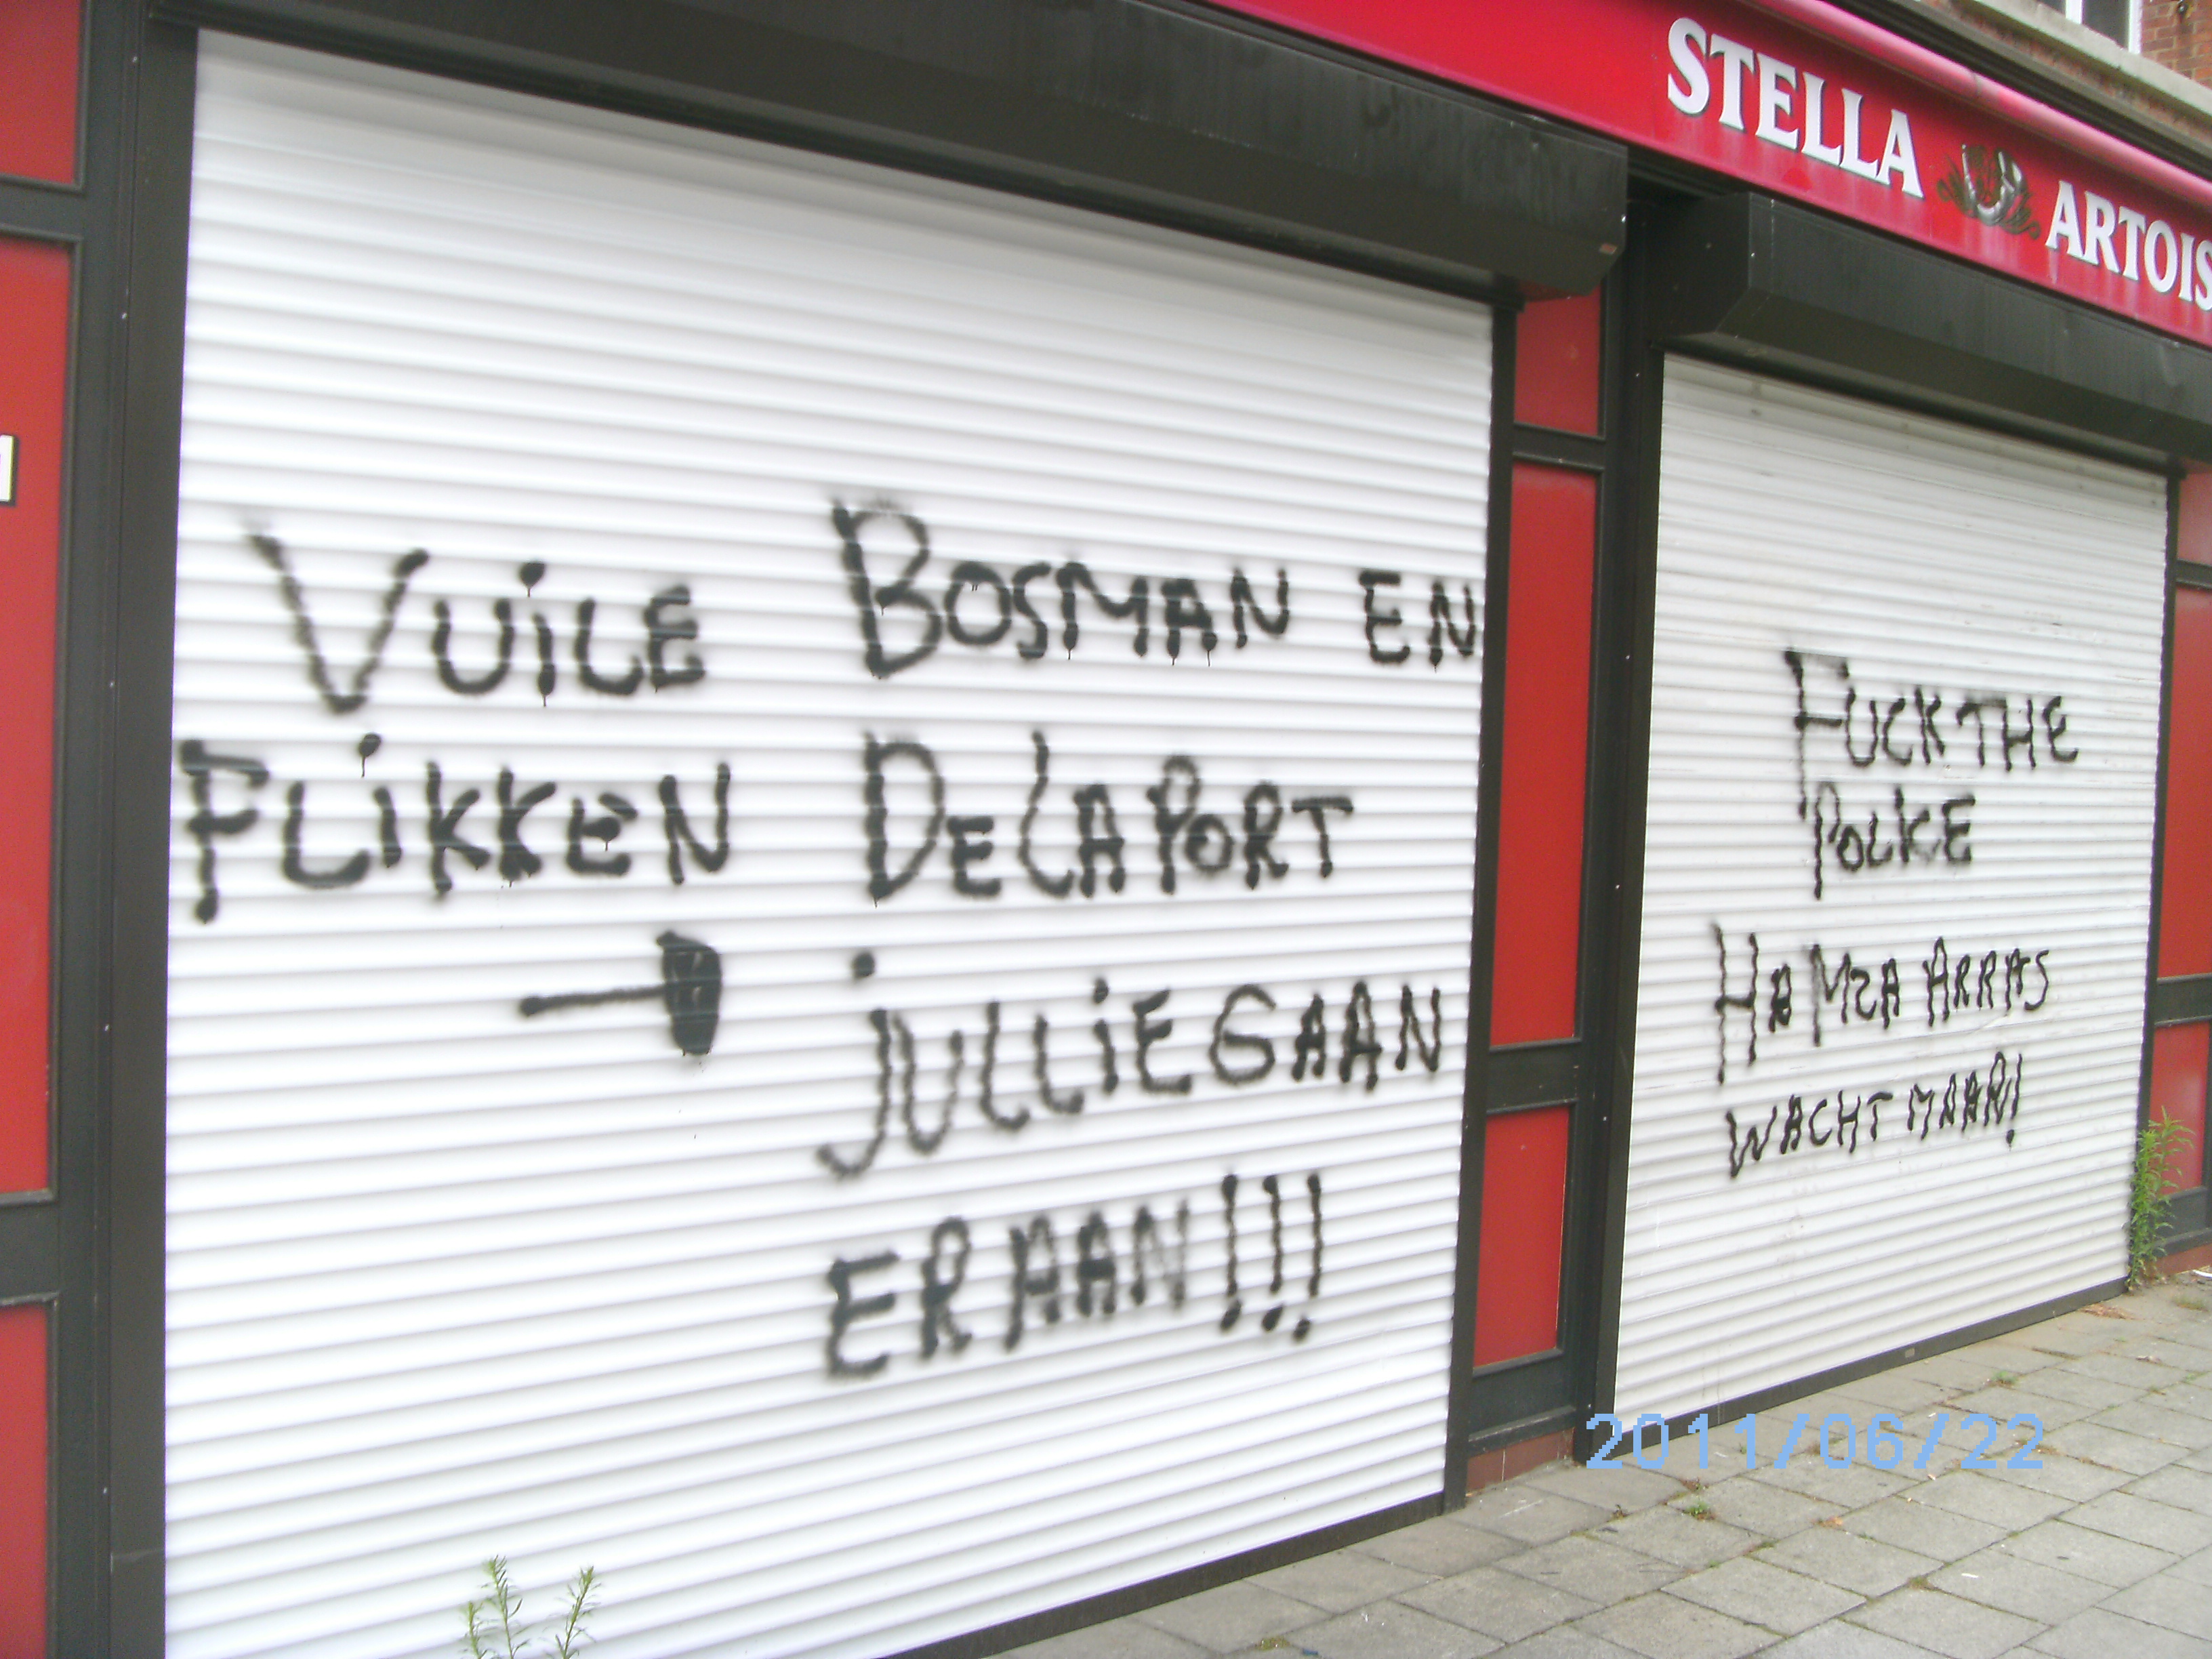 STELLA ARTOIS
VUILE BOSMAN EN
FLIKKEN DELAPORT
JULLIE GAAN
ER AAN!!!
FUCK THE
POLICE
HAMZA ARRAS
WACHT MAAR!
2011/06/22